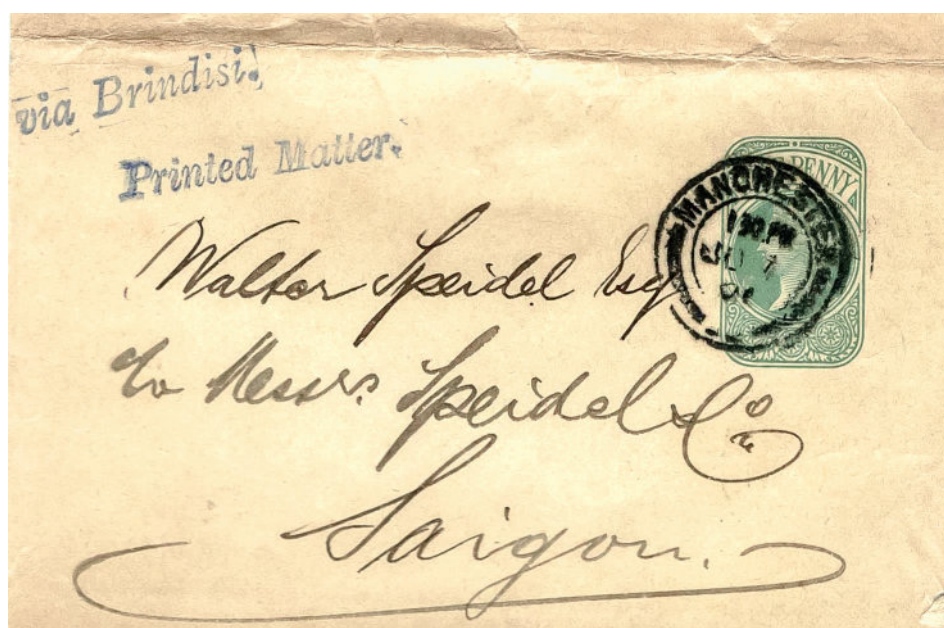 via Brindisi.
Printed Matter.
PENNY
MANCHESTER
1 30 PM
JU 7
Walter Speidel Esq
c/o Messrs. Speidel & Co
Saigon.